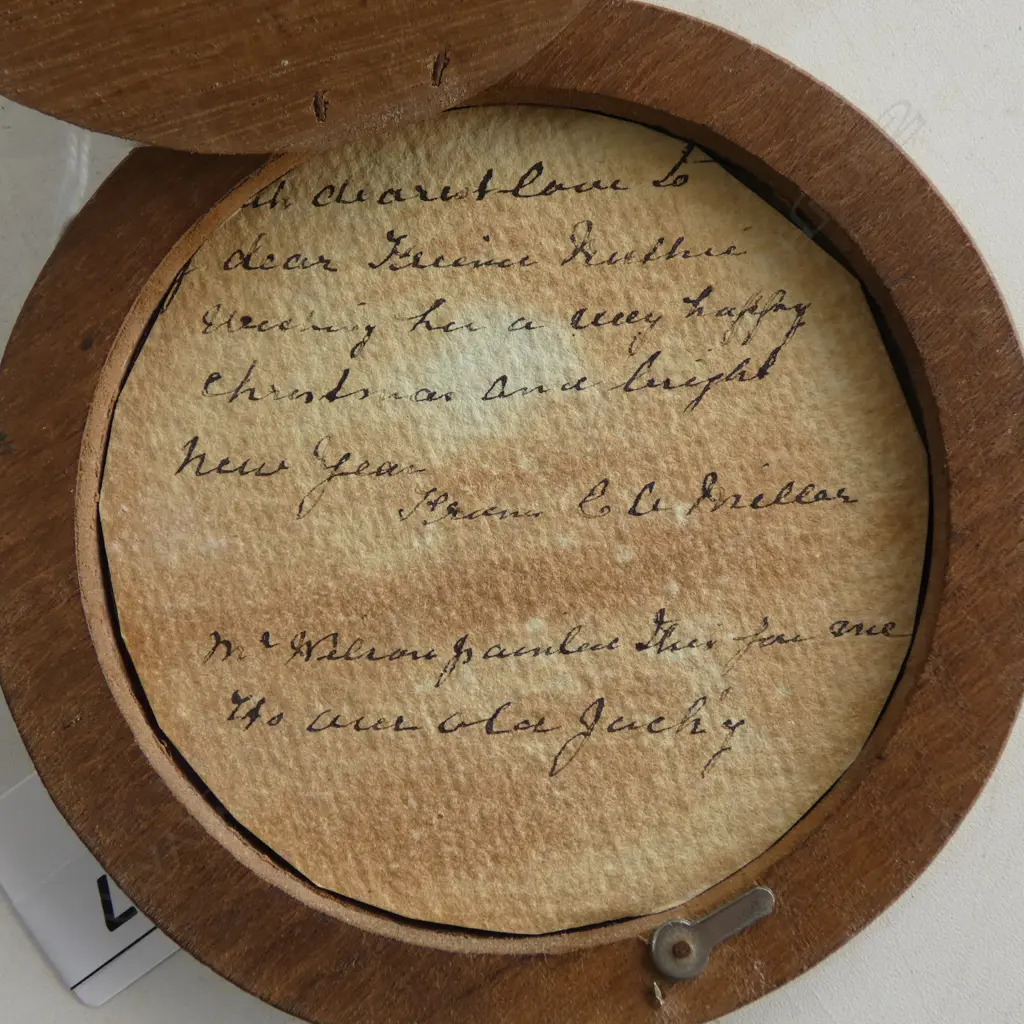 th dearest love to
dear Friend Ruthie
Wishing her a very happy
Christmas and bright
New Year
From C A Millar
Mr Wilson painted this for me
its our old Jack'y
L